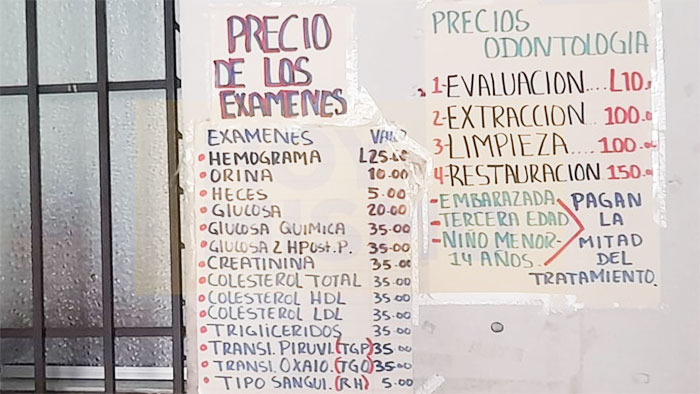 PRECIO
DE LOS
EXAMENES
EXAMENES VALO
HEMOGRAMA L25.00
ORINA 10.00
HECES 5.00
GLUCOSA 20.00
GLUCOSA QUIMICA 35.00
GLUCOSA 2 HPost.P. 35.00
CREATININA 35.00
COLESTEROL TOTAL 35.00
COLESTEROL HDL 35.00
COLESTEROL LDL 35.00
TRIGLICERIDOS 35.00
TRANSI. PIRUVI.(TGP) 35.00
TRANSI. OXALO.(TGO) 35.00
TIPO SANGUI.(RH) 5.00
PRECIOS
ODONTOLOGIA
1-EVALUACION.... L10.
2-EXTRACCION... 100.00
3-LIMPIEZA.... 100.00
4-RESTAURACION 150.00
-EMBARAZADA
-TERCERA EDAD
-NIÑO MENOR-
14 AÑOS.
PAGAN
LA
MITAD
DEL
TRATAMIENTO.